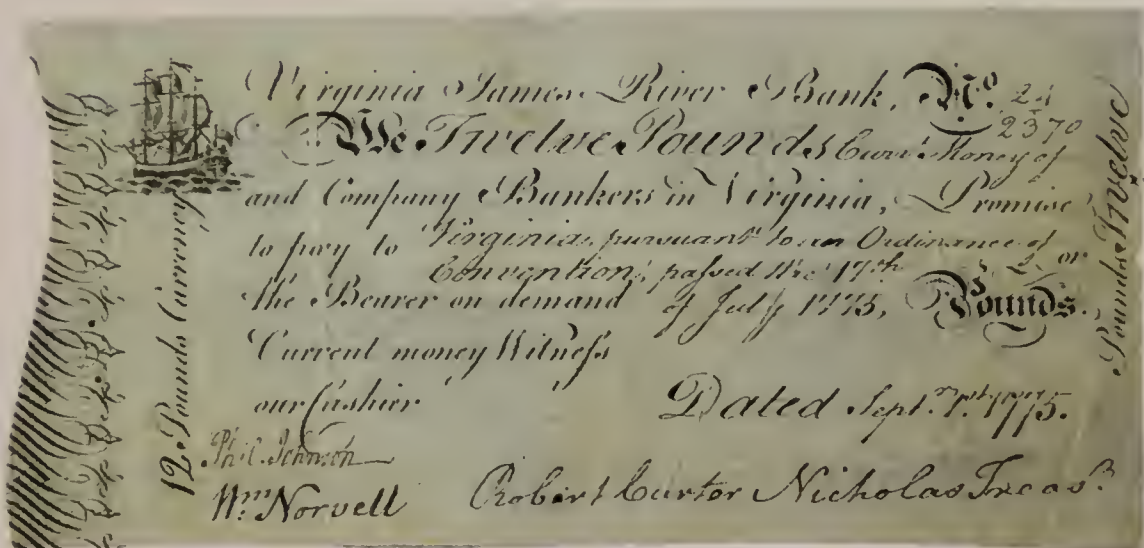 Virginia James River Bank, No. 24
2370
We Twelve Pounds Curr.t Money of
and Company Bankers in Virginia, Promise
to pay to Virginia, pursuant to an Ordinance of
Convention, passed the 17th or
the Bearer on demand of July 1775, Pounds.
Current money Witness
our Cashier Dated Sept.r 1st 1775.
Phil. Johnson
Wm. Norvell Robert Carter Nicholas Treas.r
12 Pounds Currency
Pounds Twelve